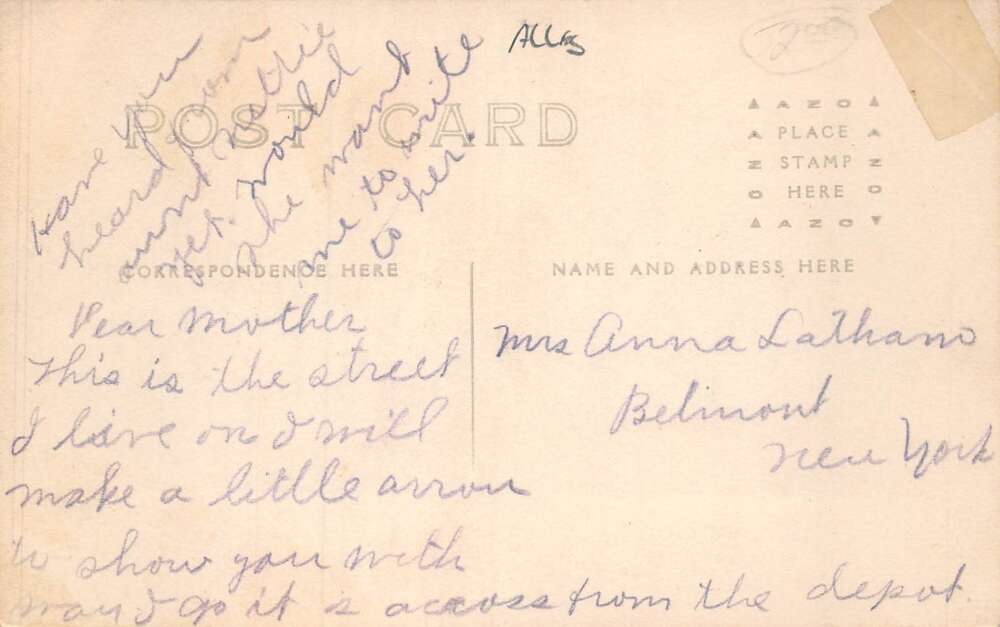 Alleg
2.00
POST CARD
Have you
heard from
aunt Nettie
yet. Would
she want
me to write
to her.
AZO
PLACE
STAMP
HERE
AZO
CORRESPONDENCE HERE
NAME AND ADDRESS HERE
Dear Mother
This is the street
I live on I will
make a little arrow
to show you with
way I go it is across from the depot.
Mrs Anna Latham
Belmont
New York